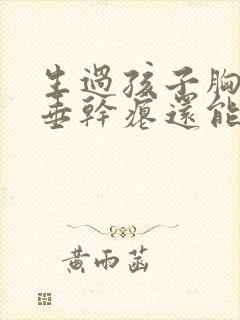 生過孩子胸
垂幹癟還能
黃雨菡